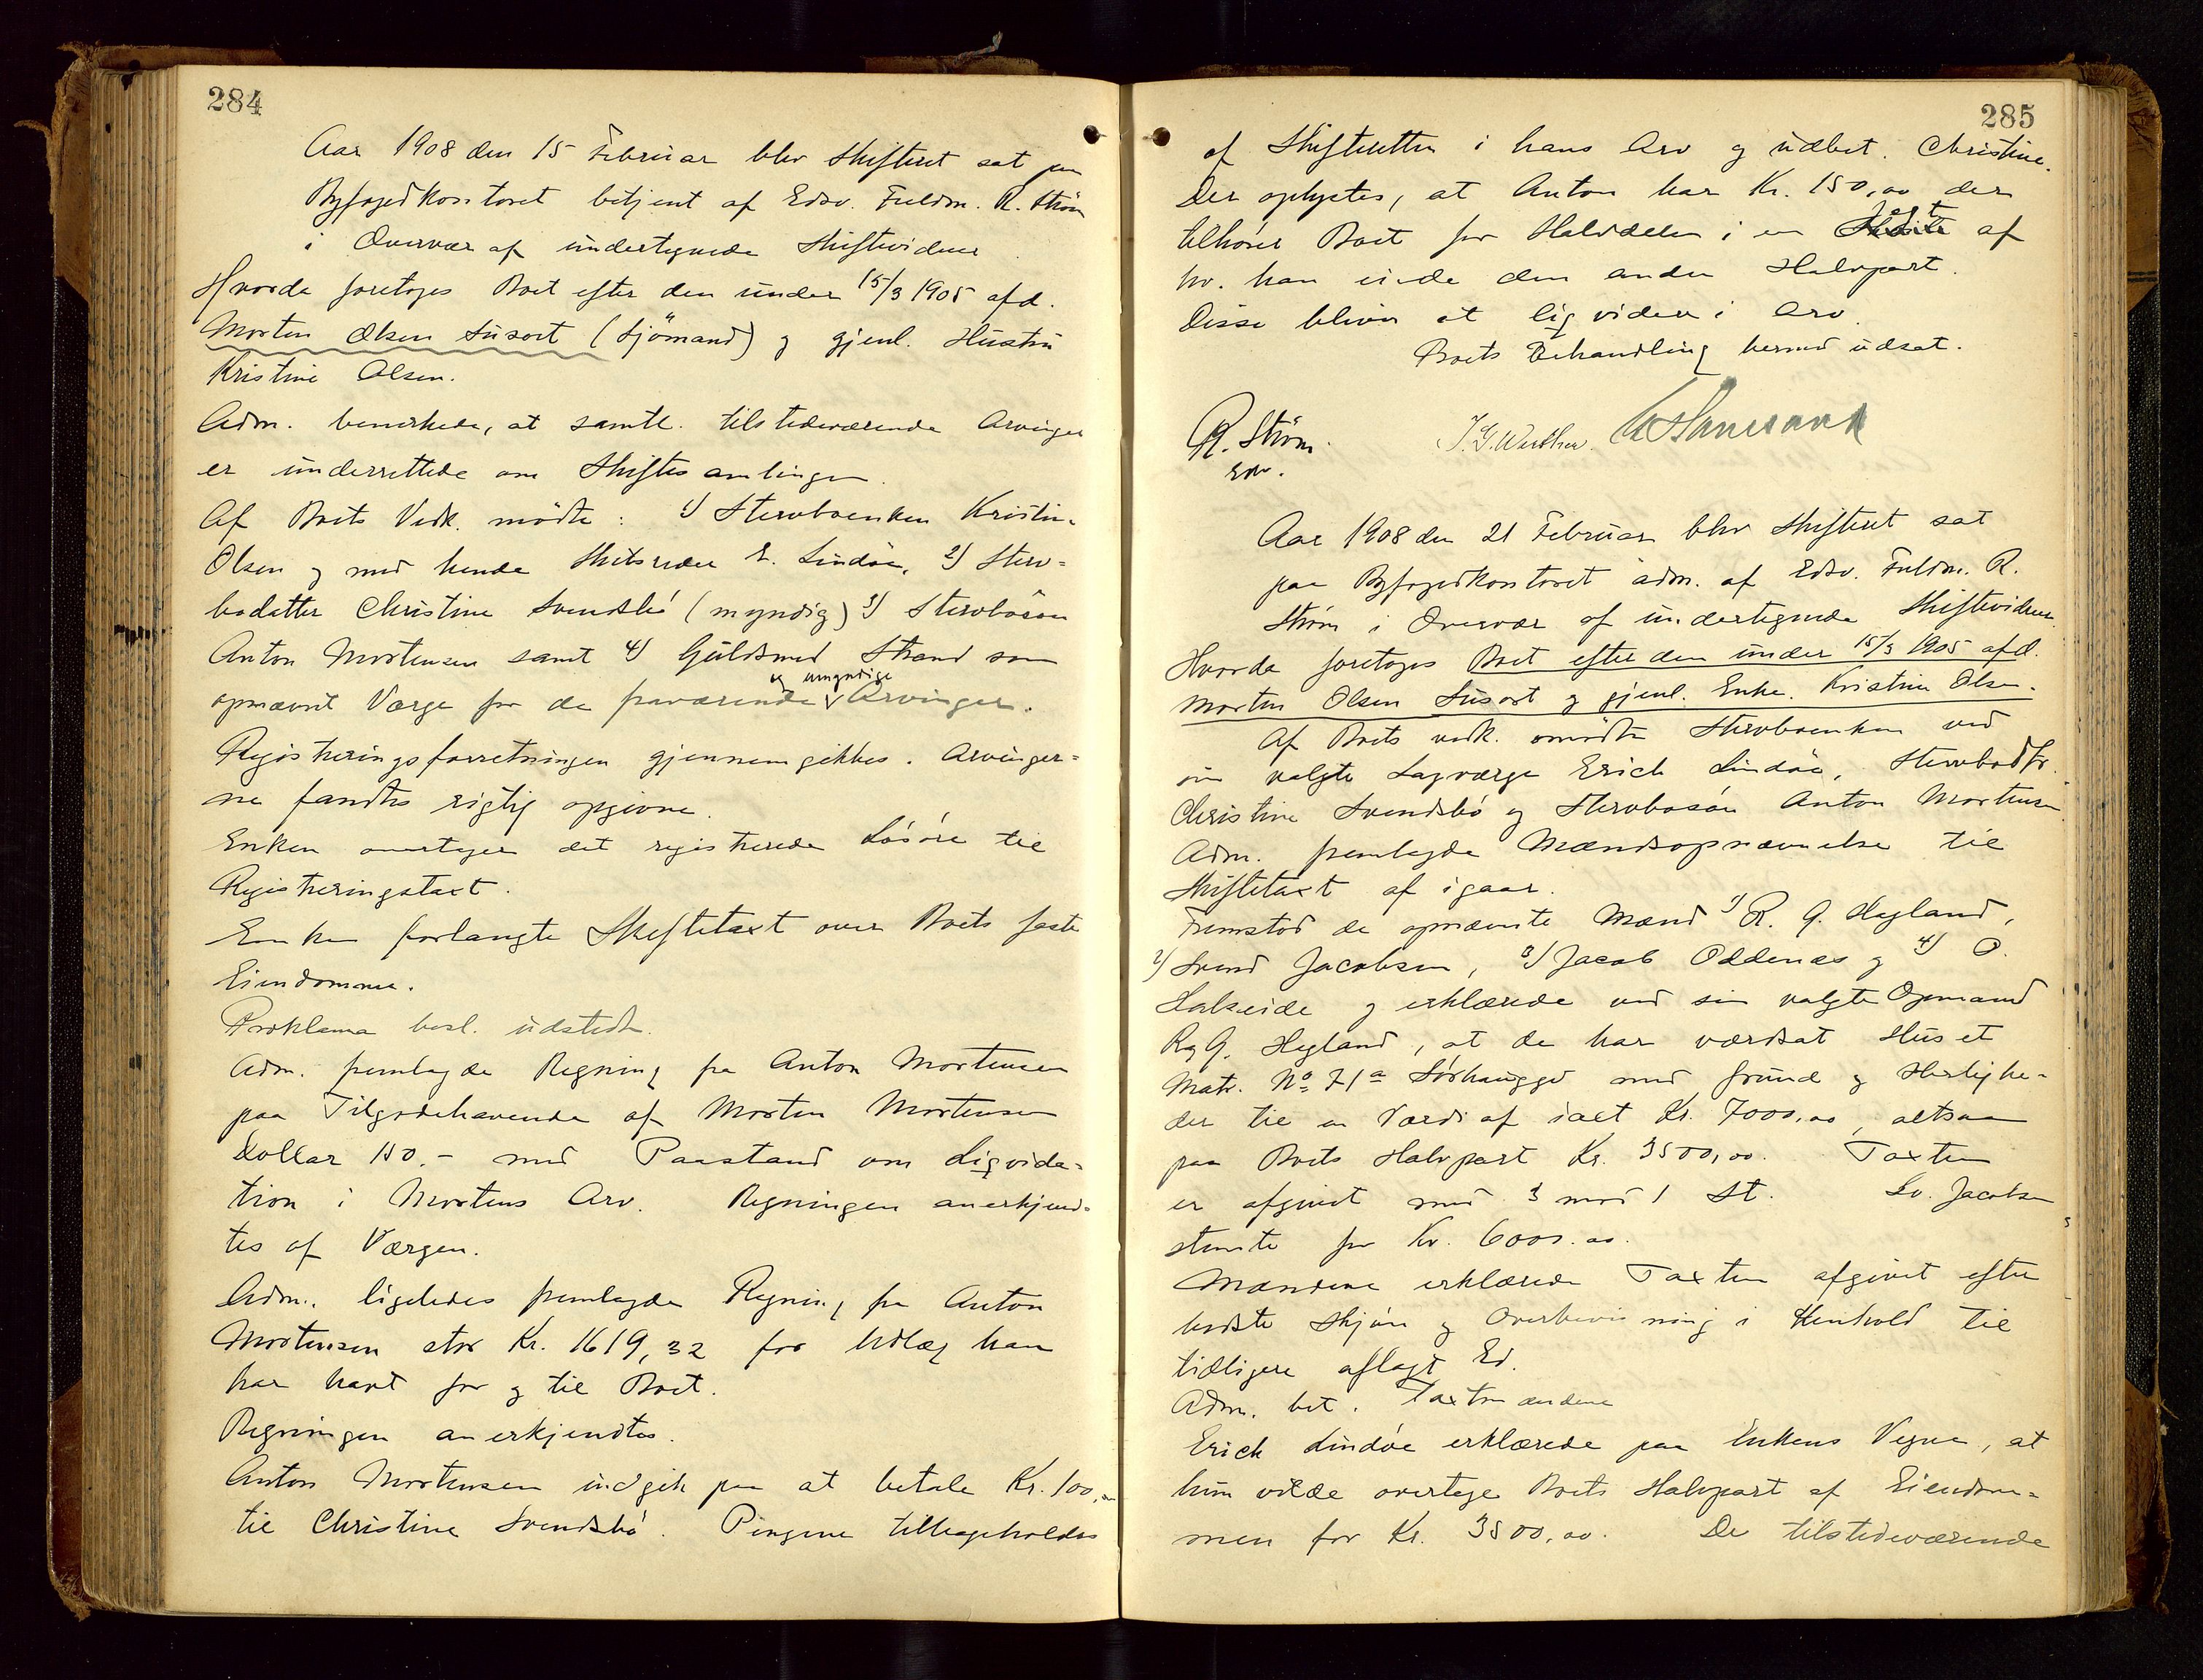 284
Aar 1908 den 15 Februar blev Skifteret sat paa
Byfogedkontoret betjent af Edsv. Fuldm. R. Strøm
i Overvær af undertegnede Skiftevidner
Hvorda foretoges Boet efter den under 15/3 1905 afd.
Morten Olsen Susort (Sjömand) og gjenl. Hustru
Kristine Olsen.
Adm. bemerkede, at samtl. tilstedeværende Arvinger
er underrettede om Skiftesamlingen.
Af Boets Vedk. mödte: 1) Stervboenken Kristine
Olsen og med hende Skibsreder E. Lindöe, 2) Sterv-
bodatter Christine Svendsbö (myndig) 3) Stervbosön
Anton Mortensen samt 4) Guldsmed Strand som
opnævnt Værge for de fraværende og umyndige Arvinger.
Registreringsforretningen gjennemgikkes. Arvinger-
ne fandtes rigtig opgivne.
Enken overtager det registrerede Lösöre til
Registreringstaxt.
Enken forlangte Skiftetaxt over Boets faste
Eiendomme.
Proklama besl. udstedt.
Adm. fremlagde Regning fra Anton Mortensen
paa Tilgodehavende af Morten Mortensen
Dollar 150.- med Paastand om Liqvida-
tion i Mortens Arv. Regningen anerkjend-
tes af Værgen.
Adm. ligeledes fremlagde Regning fra Anton
Mortensen stor Kr. 1619,32 for Udlæg han
har havt for og til Boet.
Regningen anerkjendtes.
Anton Mortensen indgik paa at betale Kr. 100,oo
til Christine Svendsbö. Pengene tilbageholdes
285
af Skifteretten i hans Arv og udbet. Christine.
Der oplystes, at Anton har Kr. 150,oo der
tilhörer Boet for Halvdelen i en af
hv. han eiede den anden Halvpart.
Disse bliver at liqvidere i Arv.
Boets Behandling hermed udsat.
R. Strøm.
Edsv.
J. G. Werther.
Aar 1908 den 21 Februar blev Skifteret sat
paa Byfogedkontoret adm. af Edsv. Fuldm. R.
Strøm i Overvær af undertegnede Skiftevidner
Hvorda foretoges Boet efter den under 15/3 1905 afd.
Morten Olsen Susort og gjenl. Enke. Kristine Olsen.
Af Boets vedk. mödte Stervboenken ved
sin valgte Lagværge Erich Lindöe, Stervbodtr.
Christine Svendsbö og Stervbosön Anton Mortensen
Adm. fremlagde Mændsopnævnelse til
Skiftetaxt af igaar.
Fremstod de opnævnte Mænd 1) R. G. Hagland,
2) Svend Jacobsen, 3) Jacob Oddenæs og 4) O.
Halseide og erklærede ved sin valgte Opmand
R. G. Hagland, at de har værdsat Huset
Matr. No 71a Sörhaugge med Grund og Herlighe-
der til en Værdi af ialt Kr. 7000,oo, altsaa
paa Boets Halvpart Kr. 3500,oo. Taxten
er afgivet med 3 mod 1 St. Sv. Jacobsen
stemte for Kr. 6000.oo.
Mændene erklærede Taxten afgivet efter
bedste Skjön og Overbevisning i Henhold til
tidligere aflagt Ed.
Adm. bet. Taxtmændene
Erich Lindöe erklærede paa Enkens Vegne, at
hun vilde overtage Boets Halvpart af Eiendom-
men for Kr. 3500,oo. De tilstedeværende